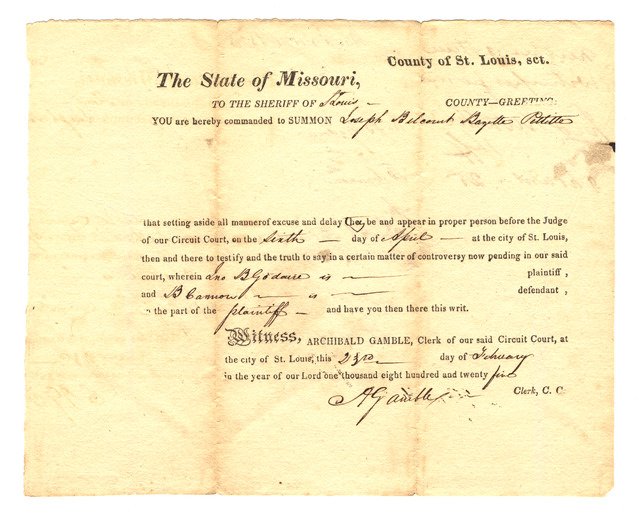 County of St. Louis, sct.
The State of Missouri,
TO THE SHERIFF OF St Louis COUNTY—GREETING:
YOU are hereby commanded to SUMMON Joseph Belcourt Bazette Pettitte
that setting aside all manner of excuse and delay they be and appear in proper person before the Judge
of our Circuit Court, on the Sixth day of April at the city of St. Louis,
then and there to testify and the truth to say in a certain matter of controversy now pending in our said
court, wherein Jno B is plaintiff,
and B Cannon is defendant,
on the part of the plaintiff and have you then there this writ.
Witness, ARCHIBALD GAMBLE, Clerk of our said Circuit Court, at
the city of St. Louis, this 23rd day of February
in the year of our Lord one thousand eight hundred and twenty five
A Gamble Clerk, C. C.